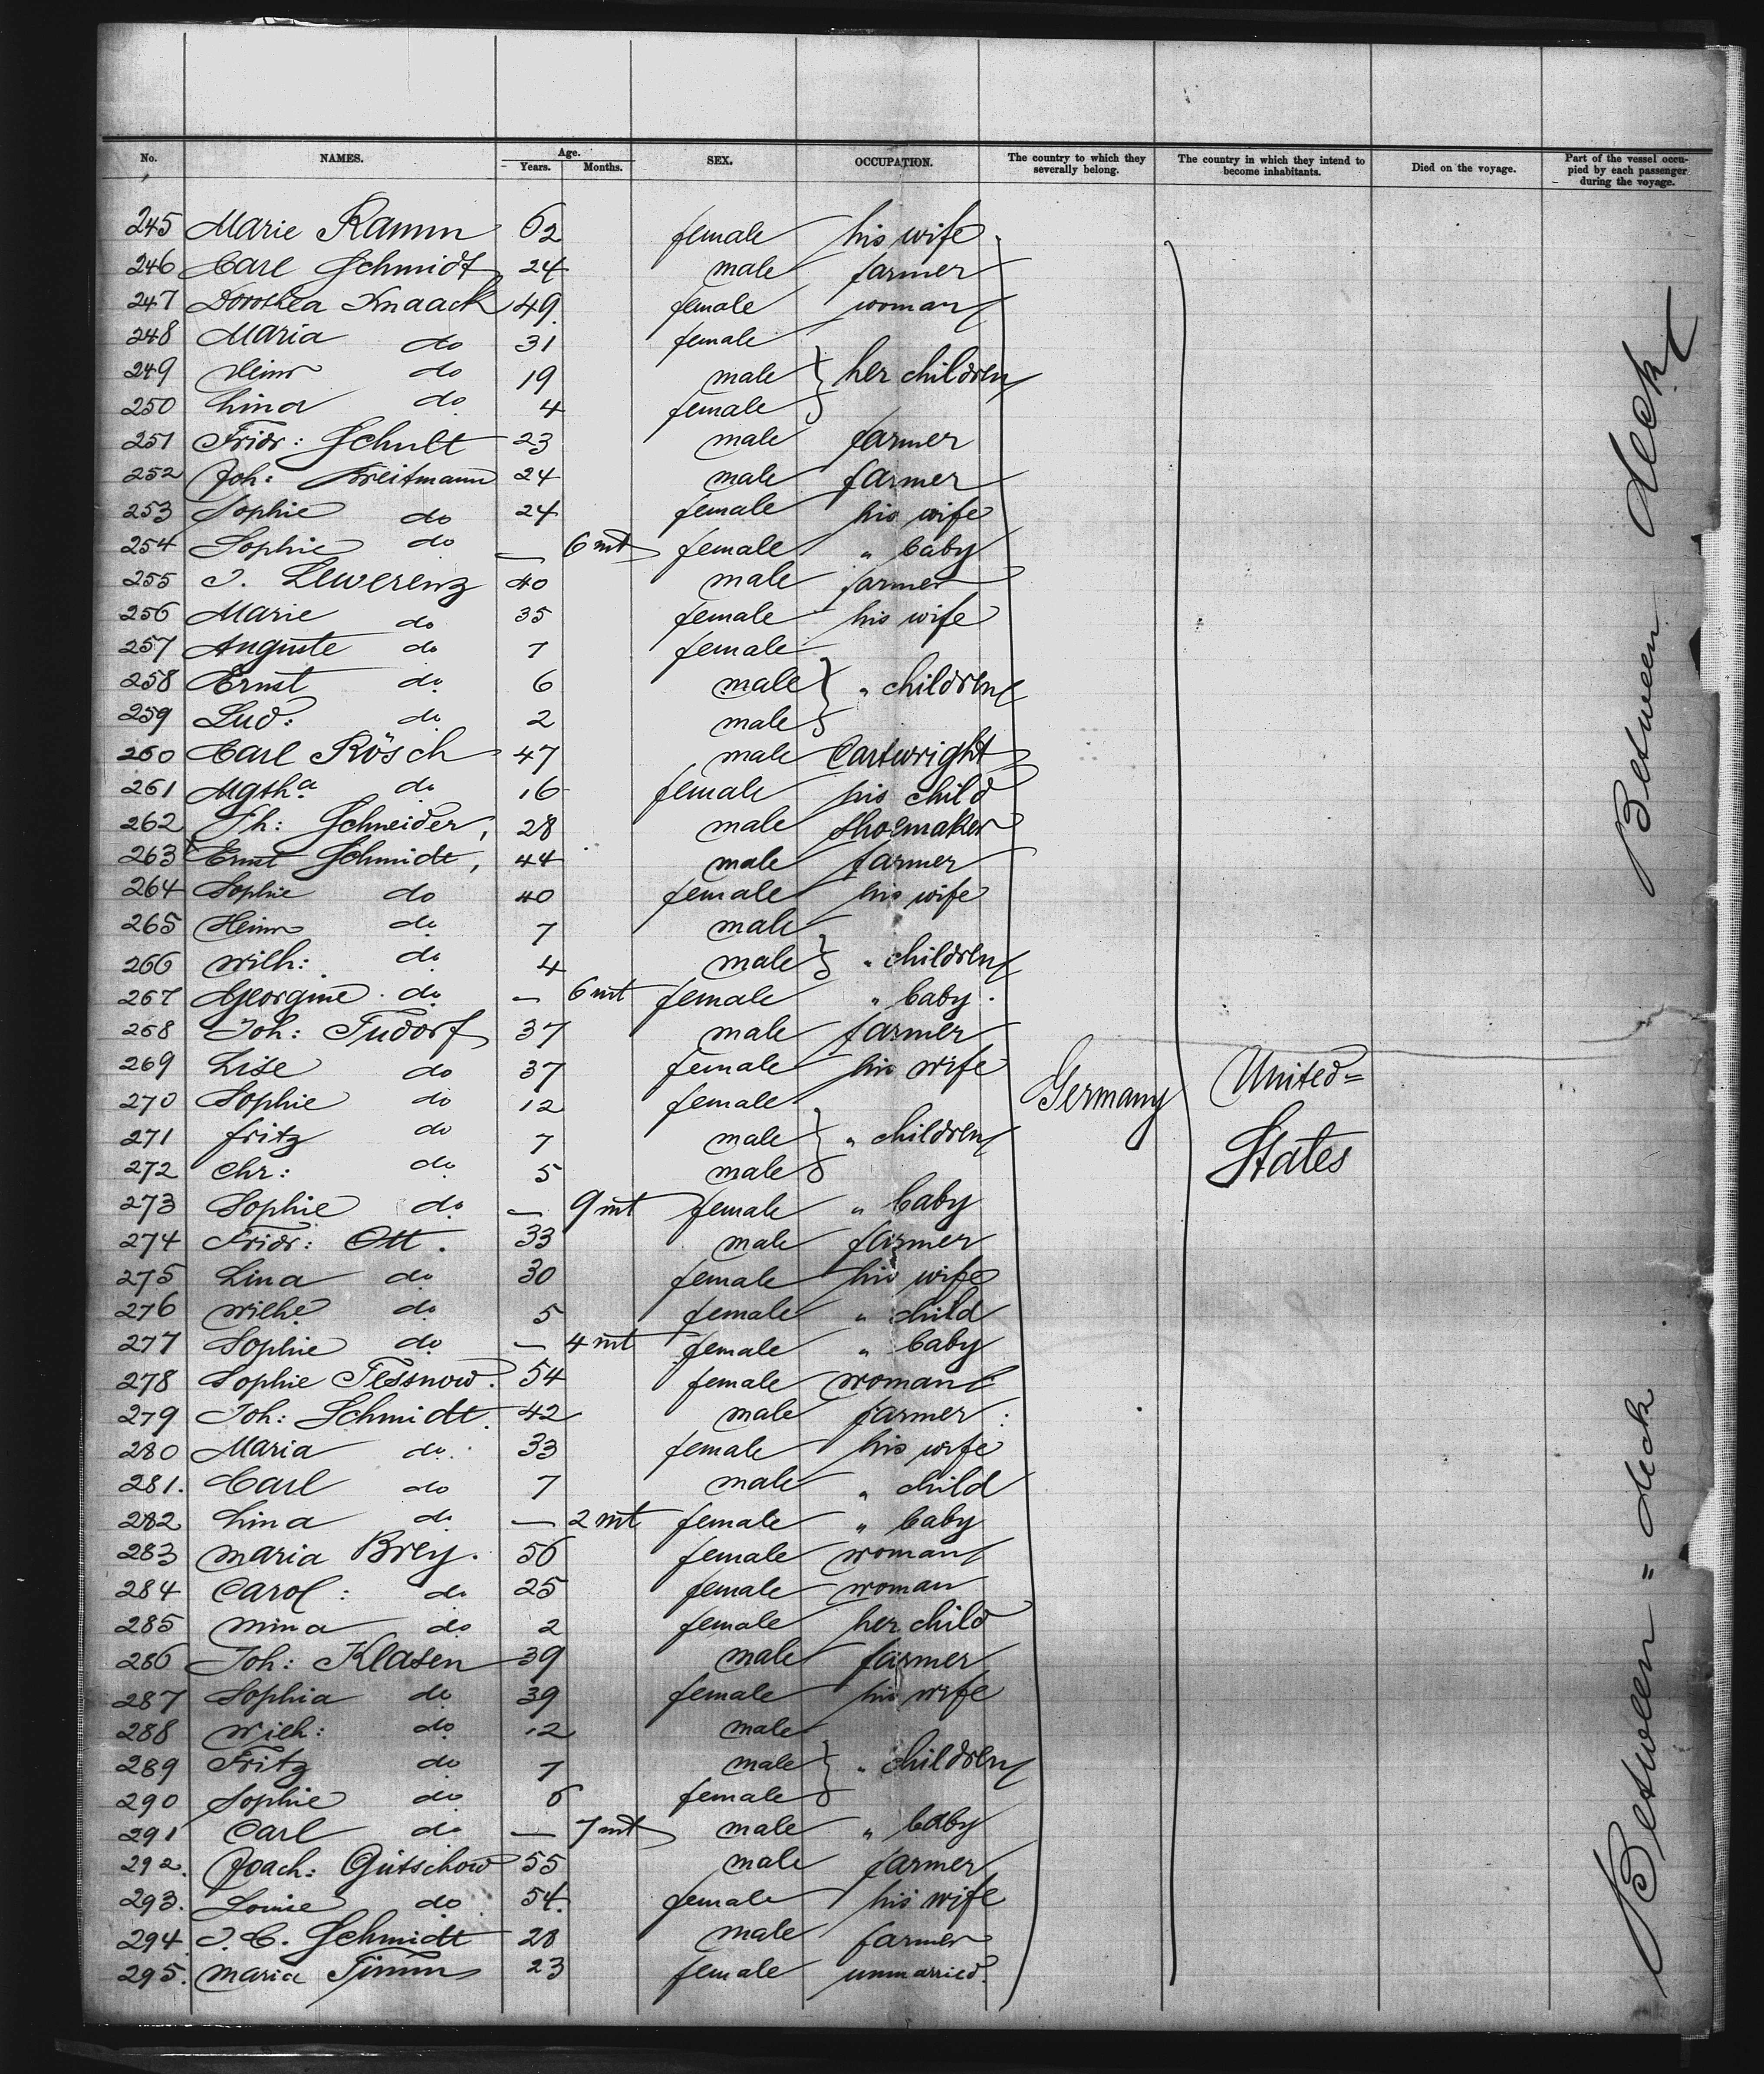 No. NAMES. Age. Years. Months. SEX. OCCUPATION. The country to which they severally belong. The country in which they intend to become inhabitants. Died on the voyage. Part of the vessel occupied by each passenger during the voyage.
245 Marie Ramm 62 female his wife
246 Carl Schmidt 24 male farmer
247 Dorothea Knaack 49 female woman
248 Maria do 31 female
249 Heinr do 19 male } her children
250 Lina do 4 female
251 Fridr: Schult 23 male farmer
252 Joh: Breitmann 24 male farmer
253 Sophie do 24 female his wife
254 Sophie do — 6 mt female " baby
255 J. Lewerenz 40 male farmer
256 Marie do 35 female his wife
257 Auguste do 7 female
258 Ernst do 6 male } " children
259 Lud: do 2 male
260 Carl Rösch 47 male Cartwright
261 Mgtha do 16 female his child
262 Fh: Schneider, 28 male shoemaker
263 Ernst Schmidt, 44 male farmer
264 Sophie do 40 female his wife
265 Heinr do 7 male
266 Wilh: do 4 male } " children
267 Georgine do — 6 mt female " baby
268 Joh: Tudorf 37 male farmer
269 Lise do 37 female his wife
270 Sophie do 12 female
271 Fritz do 7 male } " children
272 Chr: do 5 male
273 Sophie do — 9 mt female " baby
274 Fridr: Ott. 33 male farmer
275 Lina do 30 female his wife
276 Wilhe do 5 female " child
277 Sophie do — 4 mt female " baby
278 Sophie Tessnow. 54 female woman
279 Joh: Schmidt 42 male farmer
280 Maria do 33 female his wife
281. Carl do 7 male " child
282 Lina do — 2 mt female " baby
283 Maria Brey. 56 female woman
284 Carol: do 25 female woman
285 Mina do 2 female her child
286 Joh: Klasen 39 male farmer
287 Sophia do 39 female his wife
288 Wilh: do 12 male
289 Fritz do 7 male } " children
290 Sophie do 6 female
291 Carl do — 7 mt male " baby
292. Joach: Gütschow 55 male farmer
293. Louise do 54. female his wife
294 J. C. Schmidt 28 male farmer
295. Maria Timm 23 female unmarried.
Germany
United=
States
Between deck
Between = deck